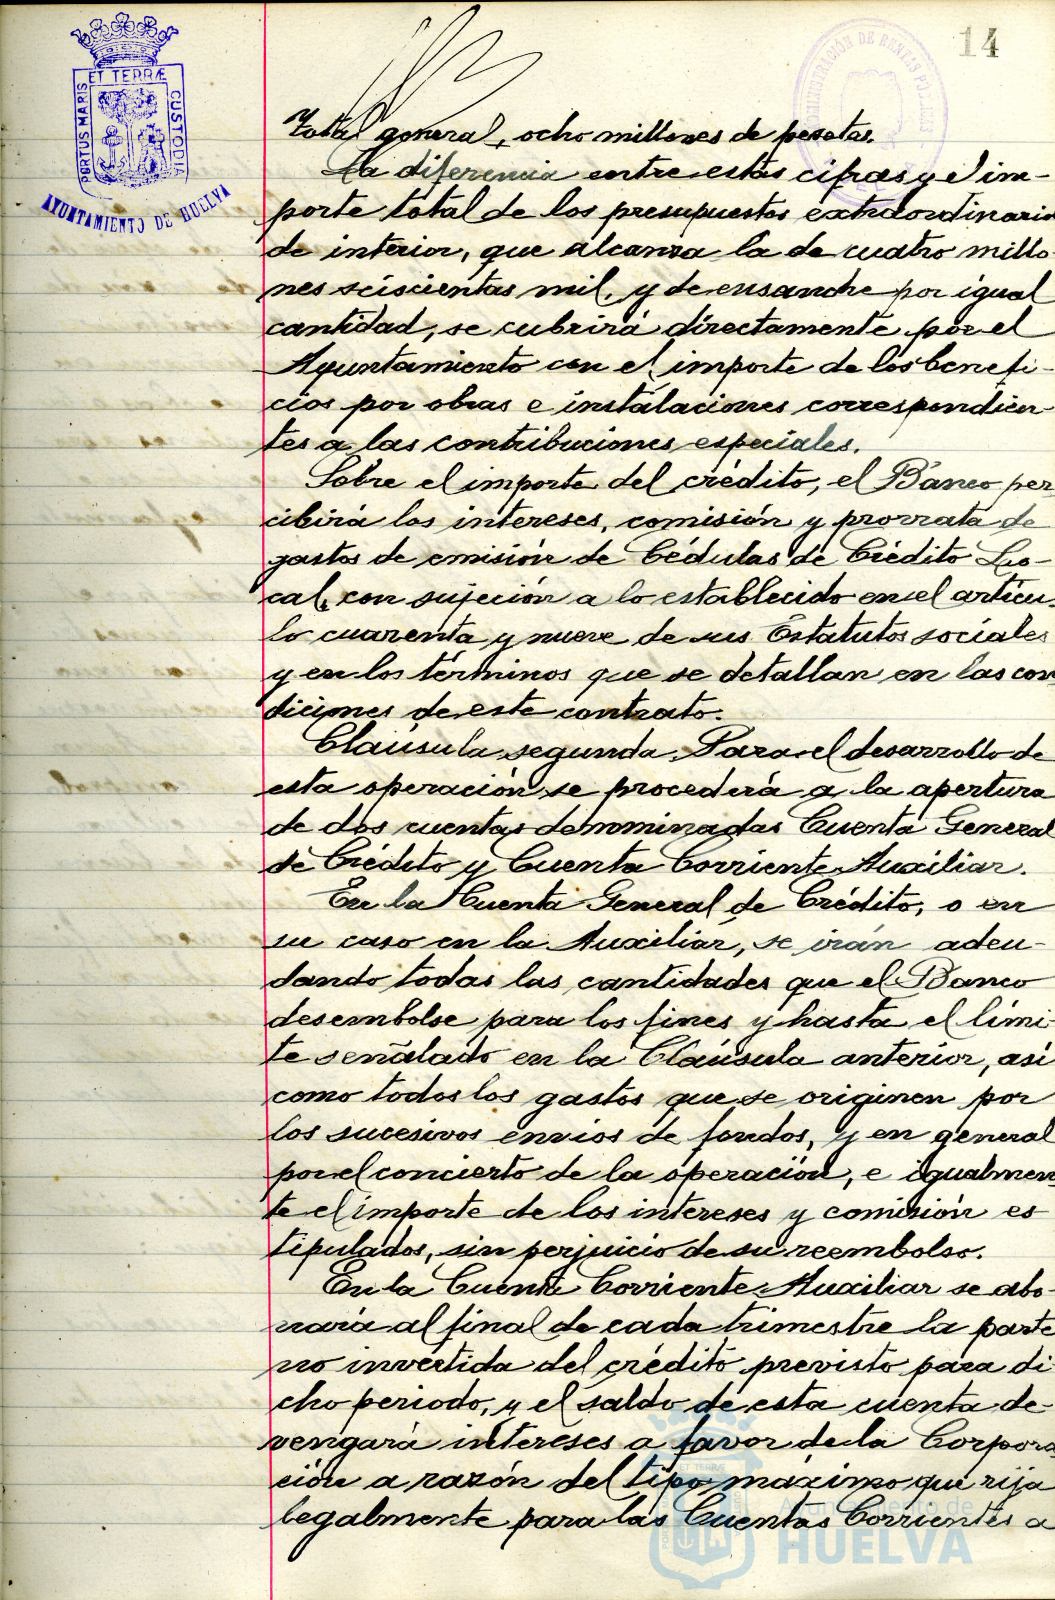 14
ET TERRÆ
PORTUS MARIS
CUSTODIA
AYUNTAMIENTO DE HUELVA
Total general, ocho millones de pesetas.
La diferencia entre estas cifras y el im-
porte total de los presupuestos extraordinario
de interior, que alcanza la de cuatro millo-
nes seiscientas mil, y de ensanche por igual
cantidad, se cubrirá directamente por el
Ayuntamiento con el importe de los benefi-
cios por obras e instalaciones correspondien-
tes a las contribuciones especiales.
Sobre el importe del crédito, el Banco per
cibirá los intereses, comisión y prorrata de
gastos de emisión de Cédulas de Crédito Lo-
cal, con sujeción a lo establecido en el articu-
lo cuarenta y nueve de sus Estatutos sociales
y en los términos que se detallan en las con
diciones de este contrato.
Cláusula segunda. Para el desarrollo de
esta operación se procederá a la apertura
de dos cuentas denominadas Cuenta General
de Crédito y Cuenta Corriente Auxiliar.
En la Cuenta General de Crédito, o en
su caso en la Auxiliar, se irán adeu-
dando todas las cantidades que el Banco
desembolse para los fines y hasta el lími-
te señalado en la Cláusula anterior, así
como todos los gastos que se originen por
los sucesivos envios de fondos, y en general
por el concierto de la operación, e igualmen
te el importe de los intereses y comisión es
tipulados, sin perjuicio de su reembolso.
En la Cuenta Corriente Auxiliar se abo-
nará al final de cada trimestre la parte
no invertida del crédito previsto para di
cho periodo, y el saldo de esta cuenta de-
vengará intereses a favor de la Corpora
ción a razón del tipo máximo que rija
legalmente para las Cuentas Corrientes a
Ayuntamiento de
HUELVA